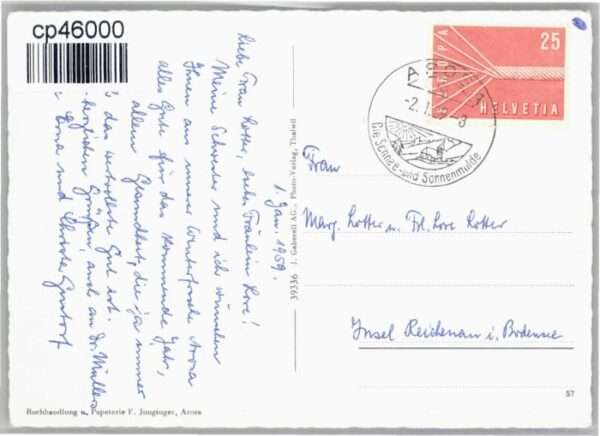 cp46000
1. Jan. 1959.
Liebe Frau Rotter, liebes Fräulein Lore!
Meine Schwester und ich wünschen
Ihnen aus unserer Winterfrische Arosa
alles Gute für das kommende Jahr,
allem Gesundheit, die ja immer
das wertvollste Gut ist.
herzlichen Grüßen, auch an Dr. Müllers
und
39336 J. Gaberell AG., Photo-Verlag, Thalwil
EUROPA
25
HELVETIA
AROSA
-2.1.
-8
Die Schnee- und Sonnenmulde
Frau
Marg. Rotter u. Frl. Lore Rotter
Insel Reichenau i. Bodensee
57
Buchhandlung u. Papeterie F. Junginger, Arosa